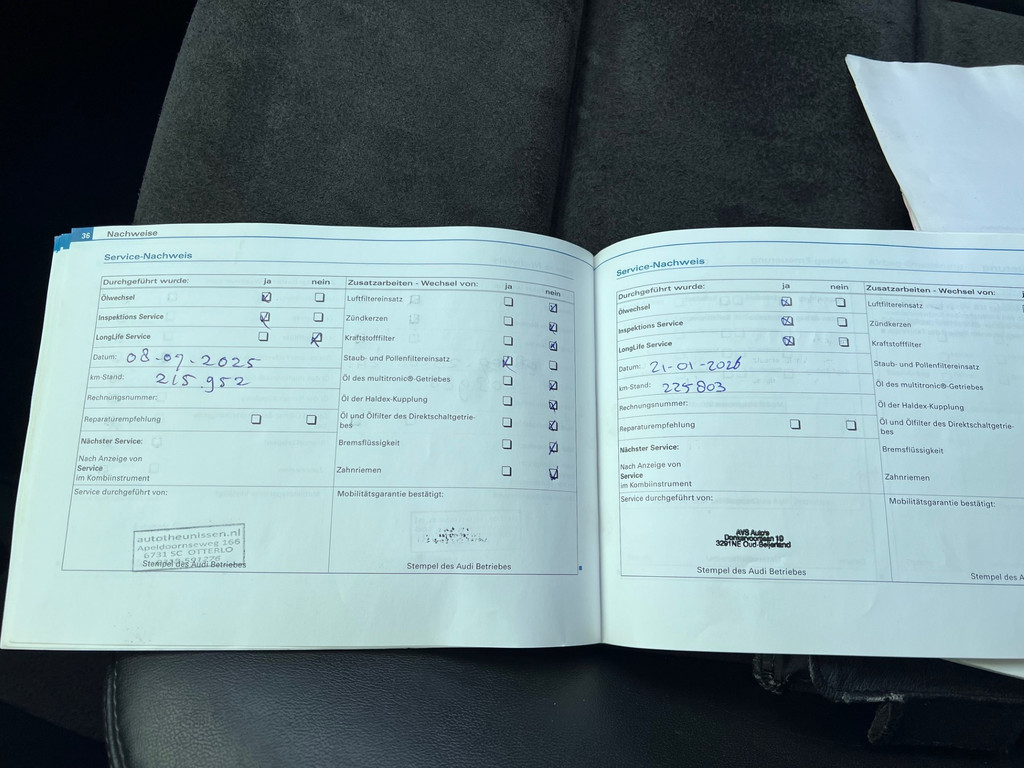 36 Nachweise
Service-Nachweis
Durchgeführt wurde: ja nein Zusatzarbeiten - Wechsel von: ja nein
Ölwechsel Luftfiltereinsatz
Inspektions Service Zündkerzen
LongLife Service Kraftstofffilter
Datum: 08-07-2025 Staub- und Pollenfiltereinsatz
km-Stand: 215.952 Öl des multitronic®-Getriebes
Rechnungsnummer: Öl der Haldex-Kupplung
Reparaturempfehlung Öl und Ölfilter des Direktschaltgetrie-
bes
Nächster Service: Bremsflüssigkeit
Nach Anzeige von
Service Zahnriemen
im Kombiinstrument
Service durchgeführt von: Mobilitätsgarantie bestätigt:
autotheunissen.nl
Apeldoornseweg 166
6731 SC OTTERLO
Stempel des Audi Betriebes Stempel des Audi Betriebes
Service-Nachweis
Durchgeführt wurde: ja nein Zusatzarbeiten - Wechsel von:
Ölwechsel Luftfiltereinsatz
Inspektions Service Zündkerzen
LongLife Service Kraftstofffilter
Datum: 21-01-2026 Staub- und Pollenfiltereinsatz
km-Stand: 225803 Öl des multitronic®-Getriebes
Rechnungsnummer: Öl der Haldex-Kupplung
Reparaturempfehlung Öl und Ölfilter des Direktschaltgetrie-
bes
Nächster Service: Bremsflüssigkeit
Nach Anzeige von
Service Zahnriemen
im Kombiinstrument
Service durchgeführt von: Mobilitätsgarantie bestätigt:
AVS Auto's
Donkervoorsen 10
3291NE Oud-Beijerland
Stempel des Audi Betriebes Stempel des A